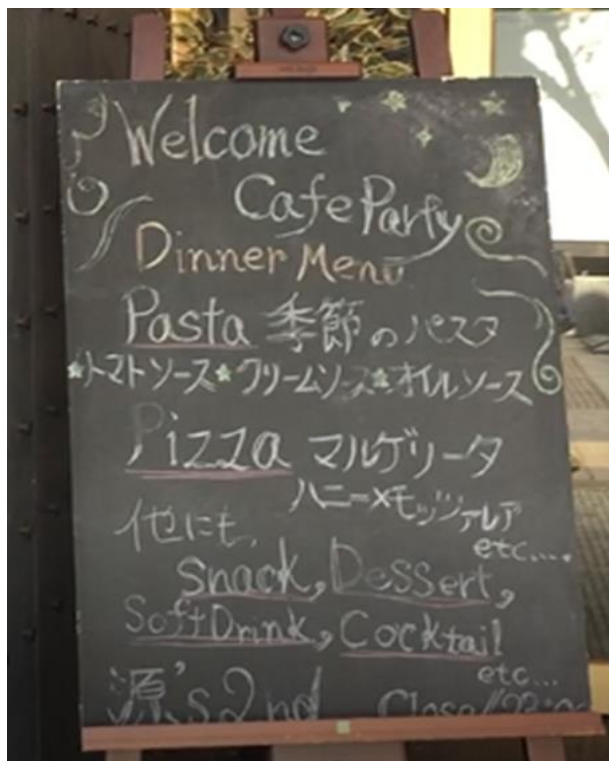 Welcome
Cafe Party
Dinner Menu
Pasta 季節のパスタ
★トマトソース★クリームソース★オイルソース
Pizza マルゲリータ
ハニー×モッツァレア
etc....
他にも,
Snack, Dessert,
Soft Drink, Cocktail
etc...
源's 2nd Close